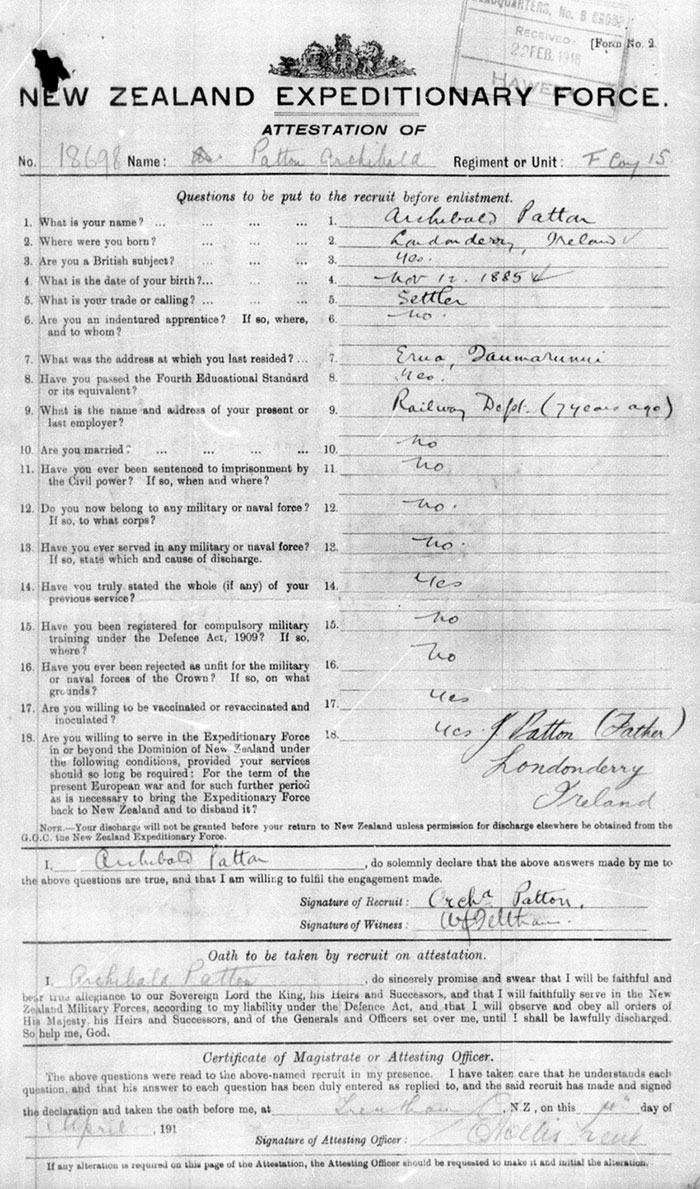 HEADQUARTERS, No. 8 GROUP
RECEIVED
FEB. 1916
HAWE
[Form No. 2
NEW ZEALAND EXPEDITIONARY FORCE.
ATTESTATION OF
No. 18698 Name: Patton Archibald Regiment or Unit: F Coy 15
Questions to be put to the recruit before enlistment.
1. What is your name? ... ... ... ... 1. Archibald Patton
2. Where were you born? ... ... ... 2. Londonderry, Ireland
3. Are you a British subject? ... ... ... 3. Yes.
4. What is the date of your birth?... ... ... 4. Nov 12. 1885
5. What is your trade or calling? ... ... ... 5. Settler
6. Are you an indentured apprentice? If so, where, 6. No.
and to whom?
7. What was the address at which you last resided? ... 7. Erua, Taumarunui
8. Have you passed the Fourth Educational Standard 8. Yes.
or its equivalent?
9. What is the name and address of your present or 9. Railway Dept. (7 years ago)
last employer?
10. Are you married? ... ... ... ... 10. No
11. Have you ever been sentenced to imprisonment by 11. No
the Civil power? If so, when and where?
12. Do you now belong to any military or naval force? 12. No.
If so, to what corps?
13. Have you ever served in any military or naval force? 13. No.
If so, state which and cause of discharge.
14. Have you truly stated the whole (if any) of your 14. Yes
previous service?
15. Have you been registered for compulsory military 15. No
training under the Defence Act, 1909? If so,
where?
16. Have you ever been rejected as unfit for the military 16. No
or naval forces of the Crown? If so, on what
grounds?
17. Are you willing to be vaccinated or revaccinated and 17. Yes
inoculated?
18. Are you willing to serve in the Expeditionary Force 18. Yes. J Patton (Father)
in or beyond the Dominion of New Zealand under Londonderry
the following conditions, provided your services Ireland
should so long be required: For the term of the
present European war and for such further period
as is necessary to bring the Expeditionary Force
back to New Zealand and to disband it?
NOTE.—Your discharge will not be granted before your return to New Zealand unless permission for discharge elsewhere be obtained from the
G.O.C. the New Zealand Expeditionary Force.
I, Archibald Patton, do solemnly declare that the above answers made by me to
the above questions are true, and that I am willing to fulfil the engagement made.
Signature of Recruit: Archd Patton.
Signature of Witness:
Oath to be taken by recruit on attestation.
I, Archibald Patton, do sincerely promise and swear that I will be faithful and
bear true allegiance to our Sovereign Lord the King, his Heirs and Successors, and that I will faithfully serve in the New
Zealand Military Forces, according to my liability under the Defence Act, and that I will observe and obey all orders of
His Majesty, his Heirs and Successors, and of the Generals and Officers set over me, until I shall be lawfully discharged.
So help me, God.
Certificate of Magistrate or Attesting Officer.
The above questions were read to the above-named recruit in my presence. I have taken care that he understands each
question, and that his answer to each question has been duly entered as replied to, and the said recruit has made and signed
the declaration and taken the oath before me, at Trentham, N.Z, on this day of
April, 191
Signature of Attesting Officer:
If any alteration is required on this page of the Attestation, the Attesting Officer should be requested to make it and initial the alteration.